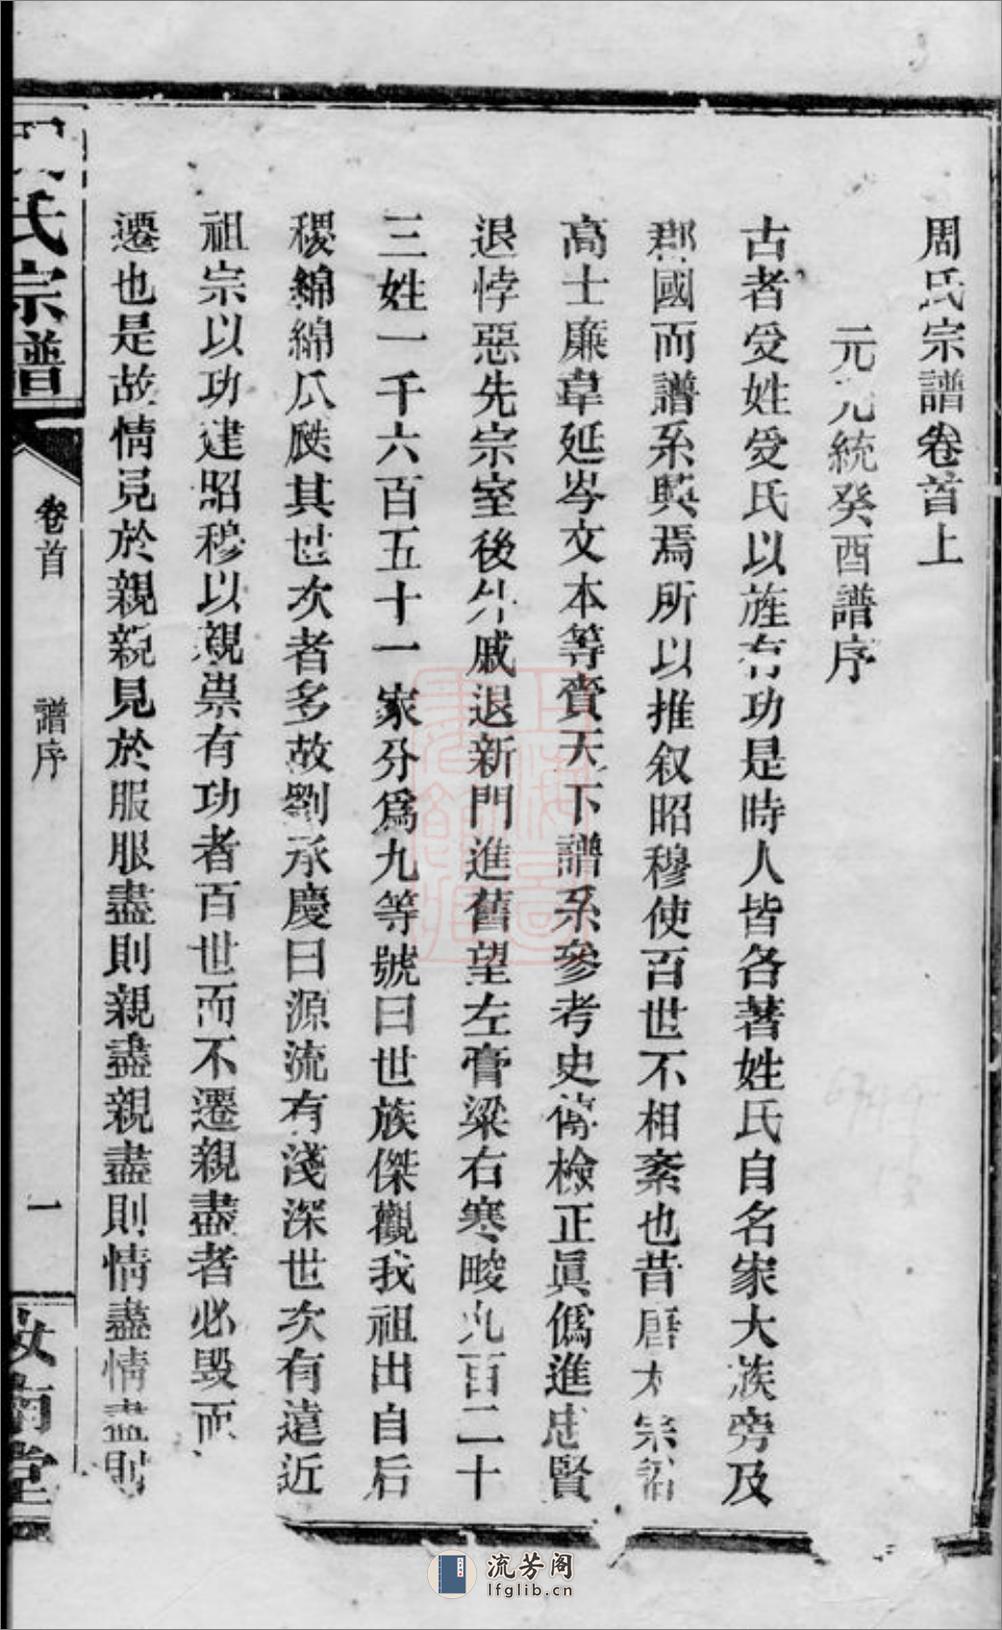 周氏宗譜卷首上
元元統癸酉譜序
古者受姓受氏以旌有功是時人皆各著姓氏自名家大族旁及
郡國而譜系興焉所以推叙昭穆使百世不相紊也昔唐太宗詔
高士廉韋延岑文本等賚天下譜系參考史傳檢正眞僞進忠賢
退悖惡先宗室後外戚退新門進舊望左膏粱右寒畯九百二十
三姓一千六百五十一家分爲九等號曰世族傑觀我祖出自后
稷綿綿瓜瓞其世次者多故劉承慶曰源流有淺深世次有遠近
祖宗以功建昭穆以親祟有功者百世而不遷親盡者必毀而
遷也是故情見於親親見於服服盡則親盡親盡則情盡情盡則
氏宗譜
卷首
譜序
一
汝南堂
流芳阁
lfglib.cn